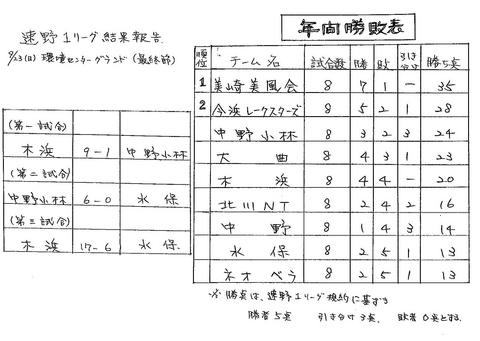 速野1リーグ結果報告
9/23(日) 環境センターグランド (最終節)
(第一試合)
木浜 9-1 中野小林
(第二試合)
中野小林 6-0 水保
(第三試合)
木浜 17-6 水保
年間勝敗表
順位 チーム名 試合数 勝 敗 引き分け 勝点
1 美崎美風会 8 7 1 - 35
2 今浜レークスターズ 8 5 2 1 28
中野小林 8 3 2 3 24
大曲 8 4 3 1 23
木浜 8 4 4 - 20
北川NT 8 2 4 2 16
中野 8 1 4 3 14
水保 8 2 5 1 13
ネオベラ 8 2 5 1 13
※ 勝点は、速野1リーグ規約に基づる
勝者5点 引き分け3点 敗者0点とする。